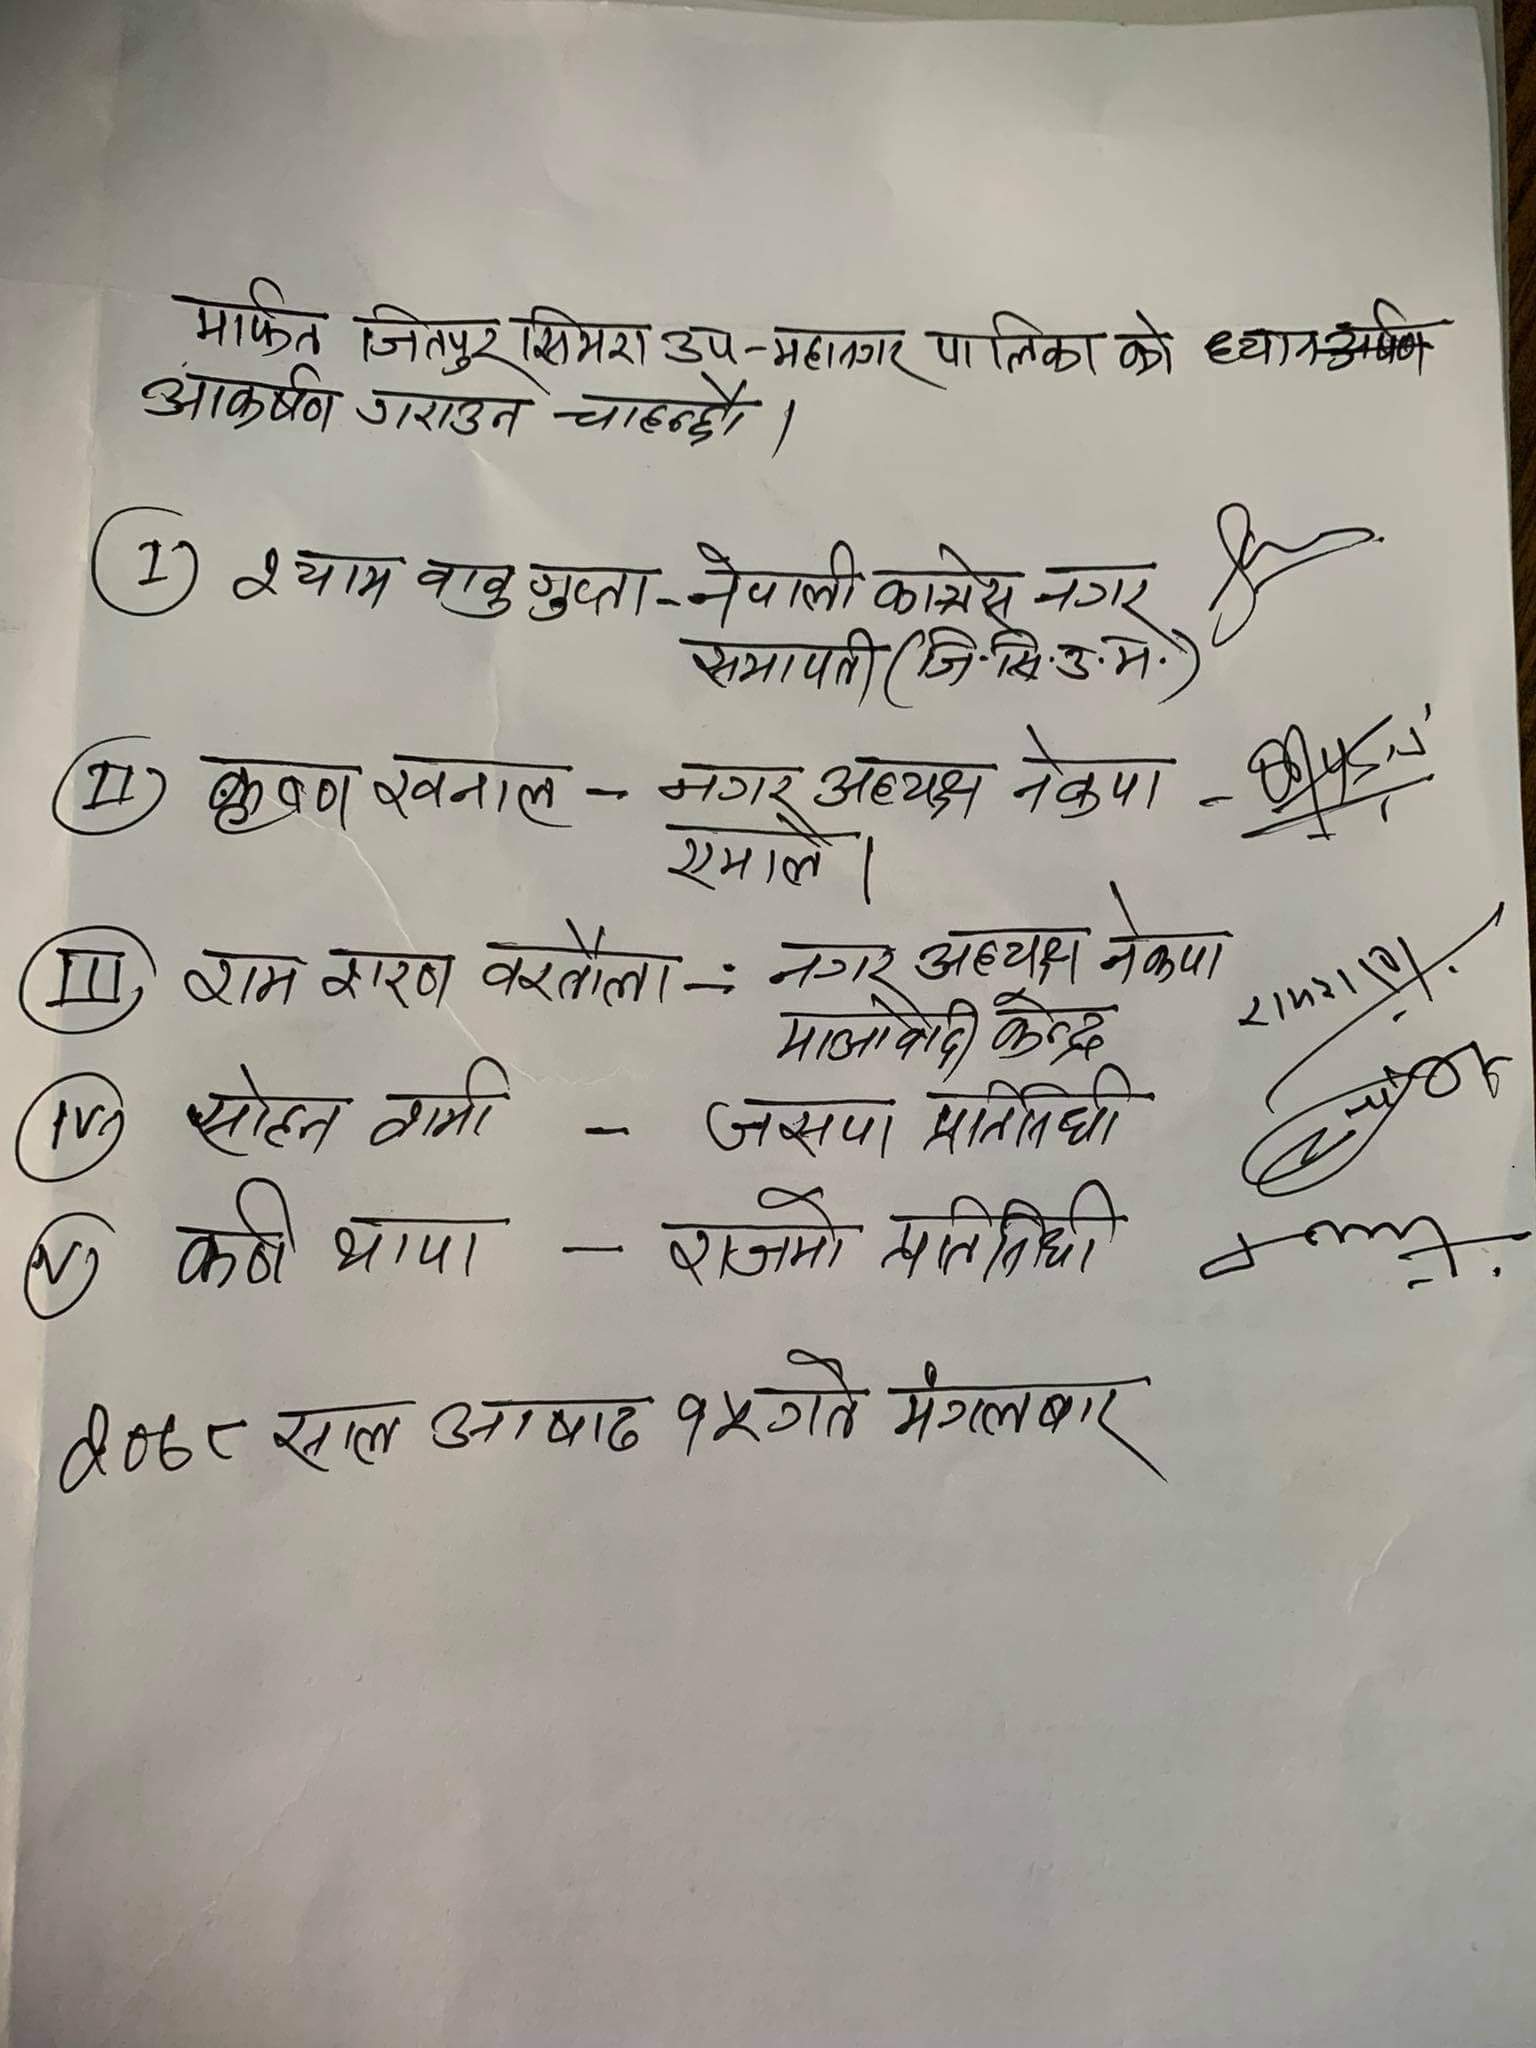 मार्फत जितपुर सिमरा उप-महानगर पालिका को ध्यान
आकर्षण गराउन चाहन्छौ।
I) श्याम वावु गुप्ता - नेपाली काग्रेस नगर
सभापती (जि.सि.उ.म.)
II) कृष्ण खनाल - नगर अध्यक्ष नेकपा -
एमाले।
III) राम शरण वस्तौला -: नगर अध्यक्ष नेकपा रामशरण
माओवादी केन्द्र
IV) सोहन - जसपा प्रतिनिधी
V) थापा - राजमो प्रतिनिधी
२०७८ साल आषाढ १५ गते मंगलबार